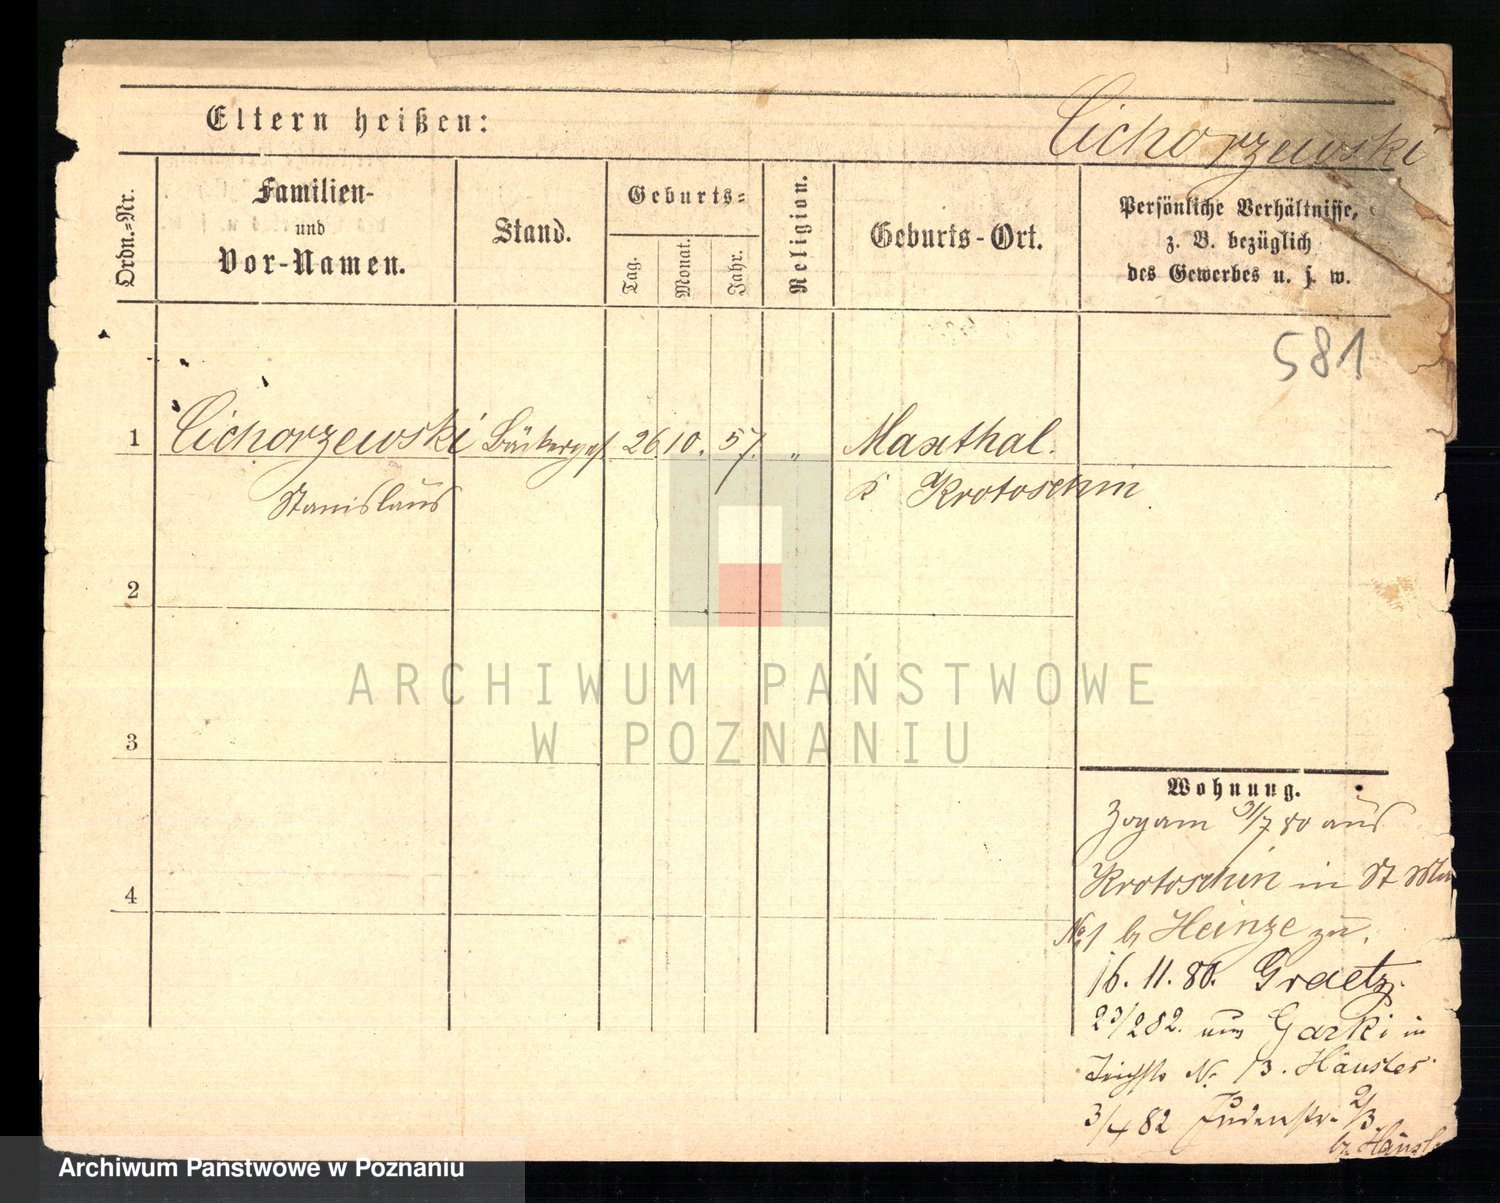 Eltern heißen:
Cichorzewski
Ordn.-Nr.
Familien-
und
Vor-Namen.
Stand.
Geburts-
Tag.
Monat.
Jahr.
Religion.
Geburts-Ort.
Persönliche Verhältnisse,
z. B. bezüglich
des Gewerbes u. s. w.
581
1 Cichorzewski Bäckerges 26 10. 57. " Maxthal.
Stanislaus
K Krotoschin
2
3
4
Wohnung.
Zog am 31/7 80 aus
Krotoschin in St
No 1 b Heinze zu.
16. 11. 80. Graetz
23/2 82. aus Garki in
No 13. Häusler
3/4 82 Judenstr. 2/3.
b. Häusl
ARCHIWUM PAŃSTWOWE
W POZNANIU
Archiwum Państwowe w Poznaniu